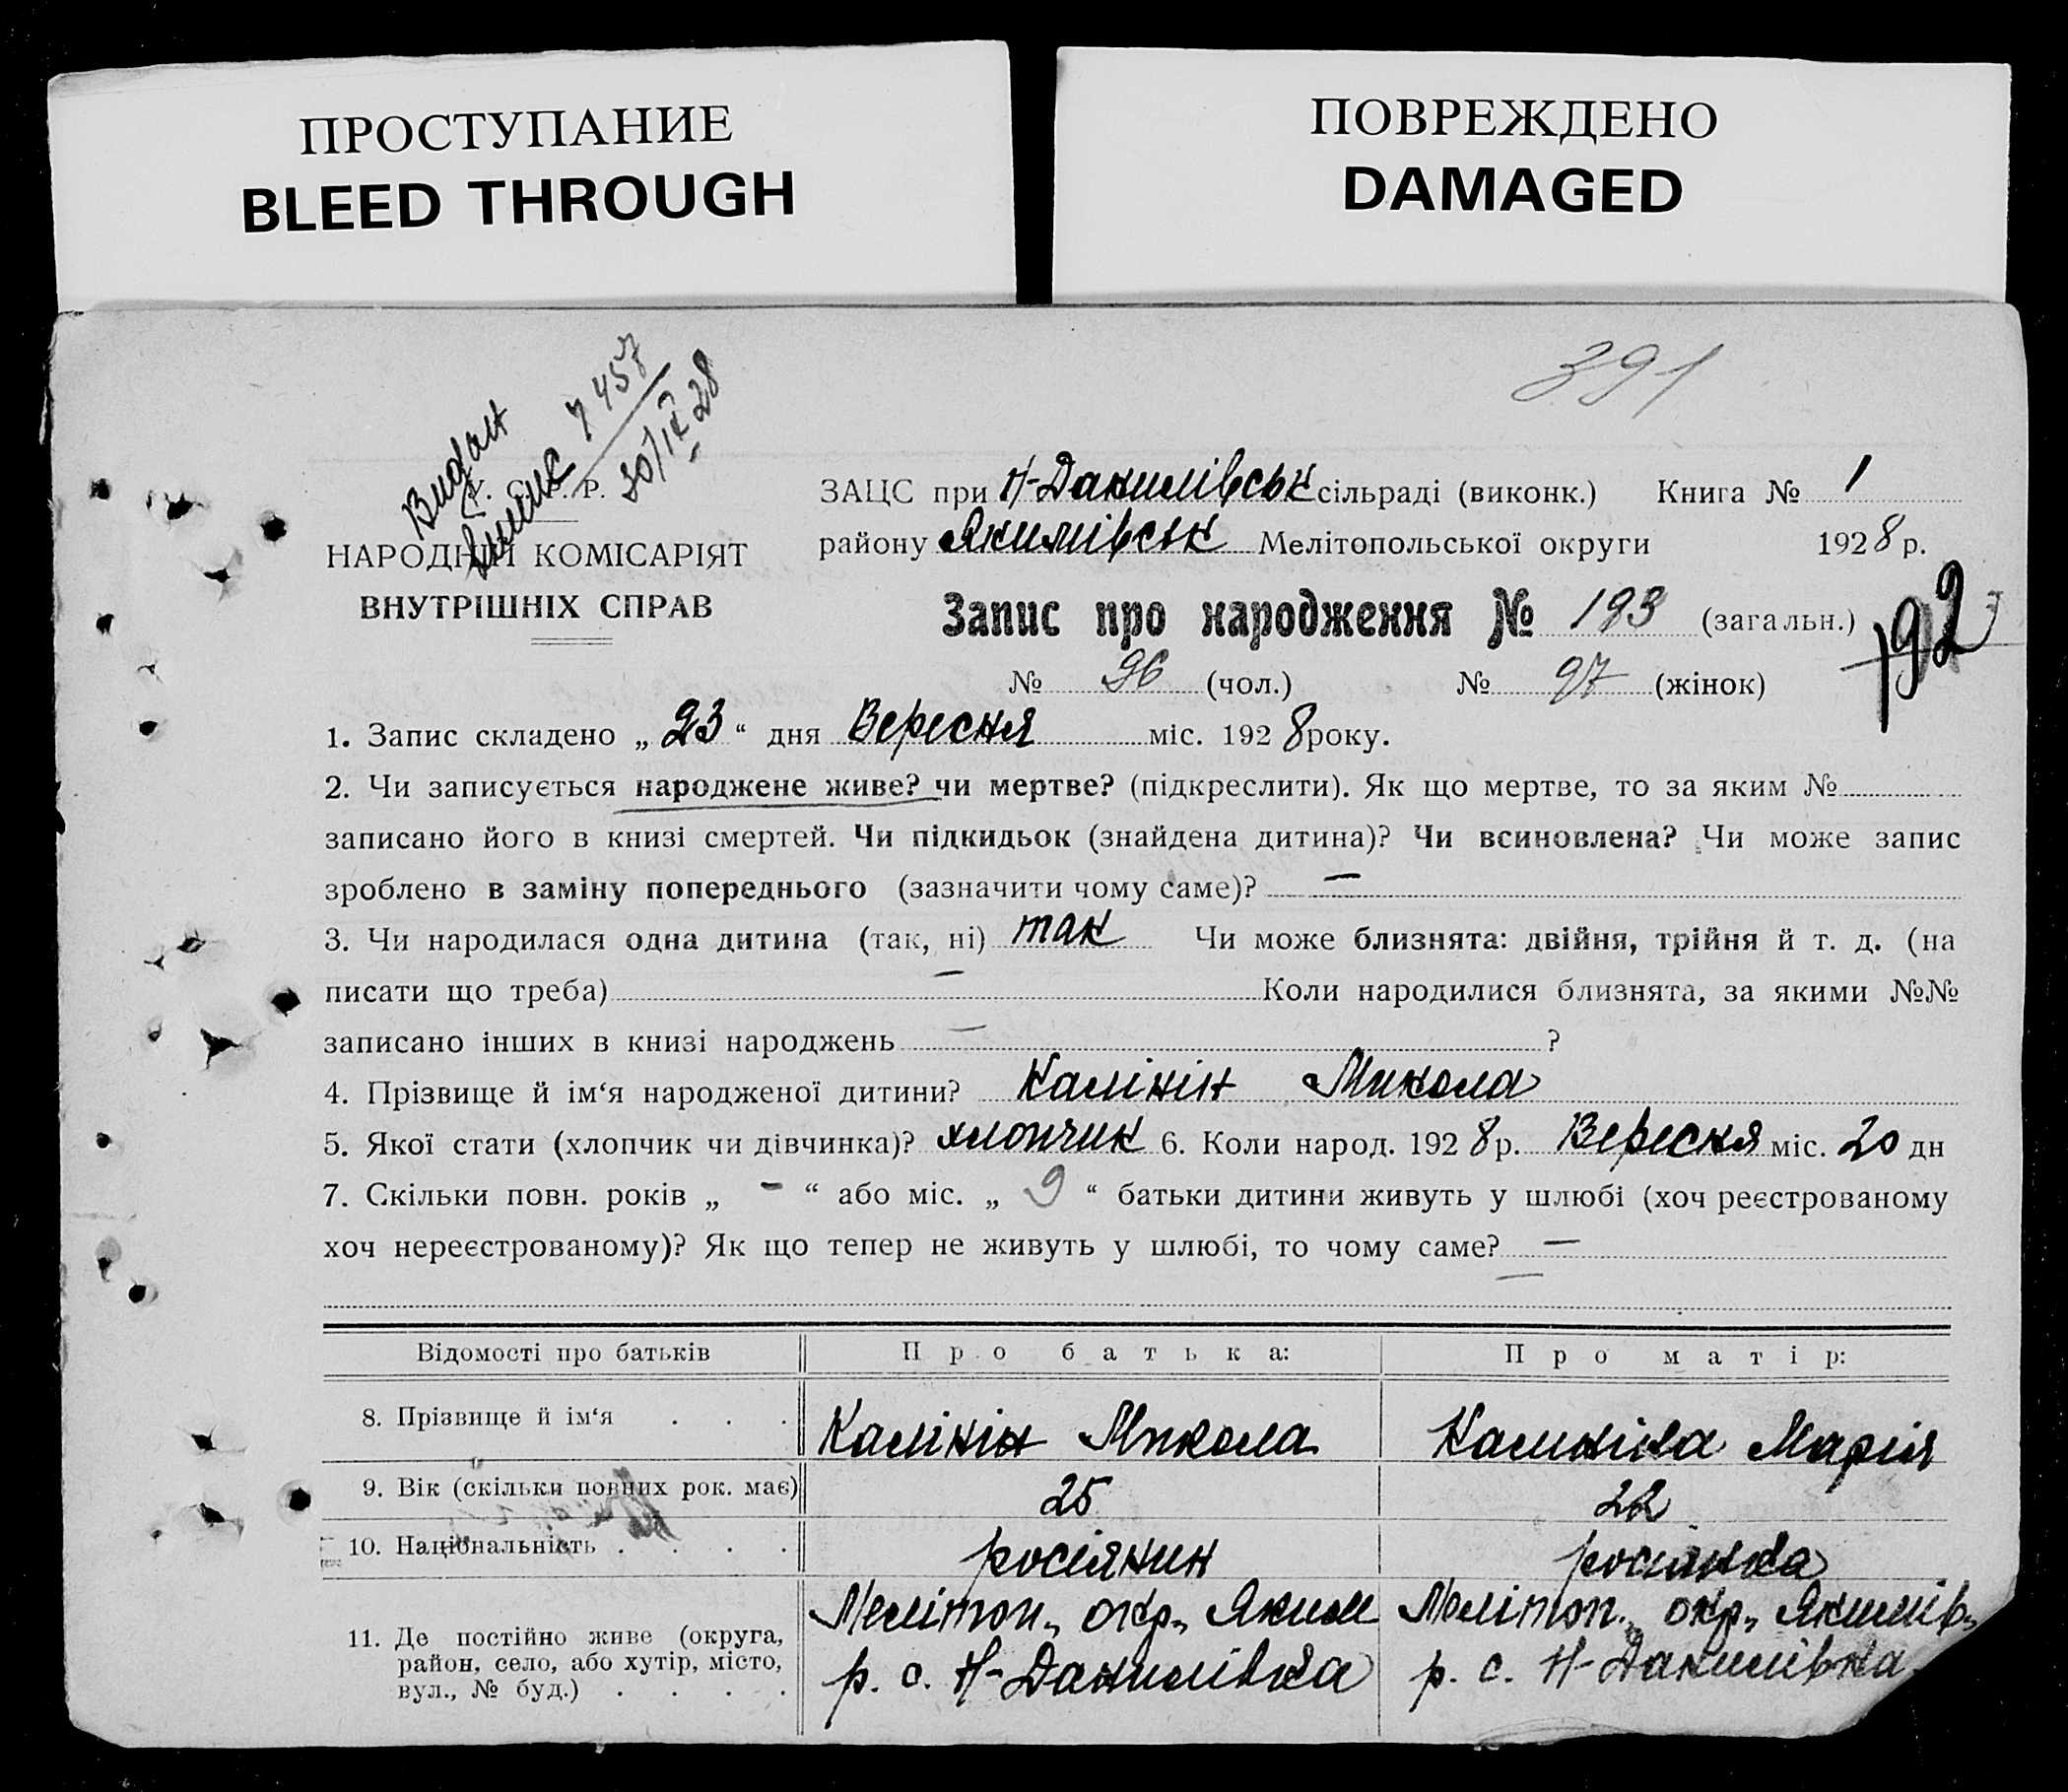 ПРОСТУПАНИЕ
BLEED THROUGH
ПОВРЕЖДЕНО
DAMAGED
391
Видан
7457
30/IX 28
У. С. Р. Р.
НАРОДНІЙ КОМІСАРІЯТ
ВНУТРІШНІХ СПРАВ
ЗАЦС при Н-Данилівськ сільраді (виконк.) Книга № 1
району Якимівськ Мелітопольської округи 1928 р.
Запис про народження № 193 (загальн.) 192
№ 96 (чол.) № 97 (жінок)
1. Запис складено „ 23 “ дня Вересня міс. 1928 року.
2. Чи записується народжене живе? чи мертве? (підкреслити). Як що мертве, то за яким №
записано його в книзі смертей. Чи підкидьок (знайдена дитина)? Чи всиновлена? Чи може запис
зроблено в заміну попереднього (зазначити чому саме)? —
3. Чи народилася одна дитина (так, ні) так Чи може близнята: двійня, трійня й т. д. (на
писати що треба) — Коли народилися близнята, за якими №№
записано інших в книзі народжень — ?
4. Прізвище й ім‘я народженої дитини? Калінін Микола
5. Якої стати (хлопчик чи дівчинка)? хлопчик 6. Коли народ. 1928 р. Вересня міс. 20 дн
7. Скільки повн. років „ - “ або міс. „ 9 “ батьки дитини живуть у шлюбі (хоч реєстрованому
хоч нереєстрованому)? Як що тепер не живуть у шлюбі, то чому саме? —
Відомості про батьків Про батька: Про матір:
8. Прізвище й ім‘я . . . Калінін Микола Калиніна Марія
9. Вік (скільки повних рок. має) 25 22
10. Національність . . . . росіянин росіянка
11. Де постійно живе (округа, район, село, або хутір, місто, вул., № буд.) . . . .
Мелітоп. окр. Яким
р. с. Н-Данилівка
Мелітоп. окр. Якимів.
р. с. Н-Данилівка